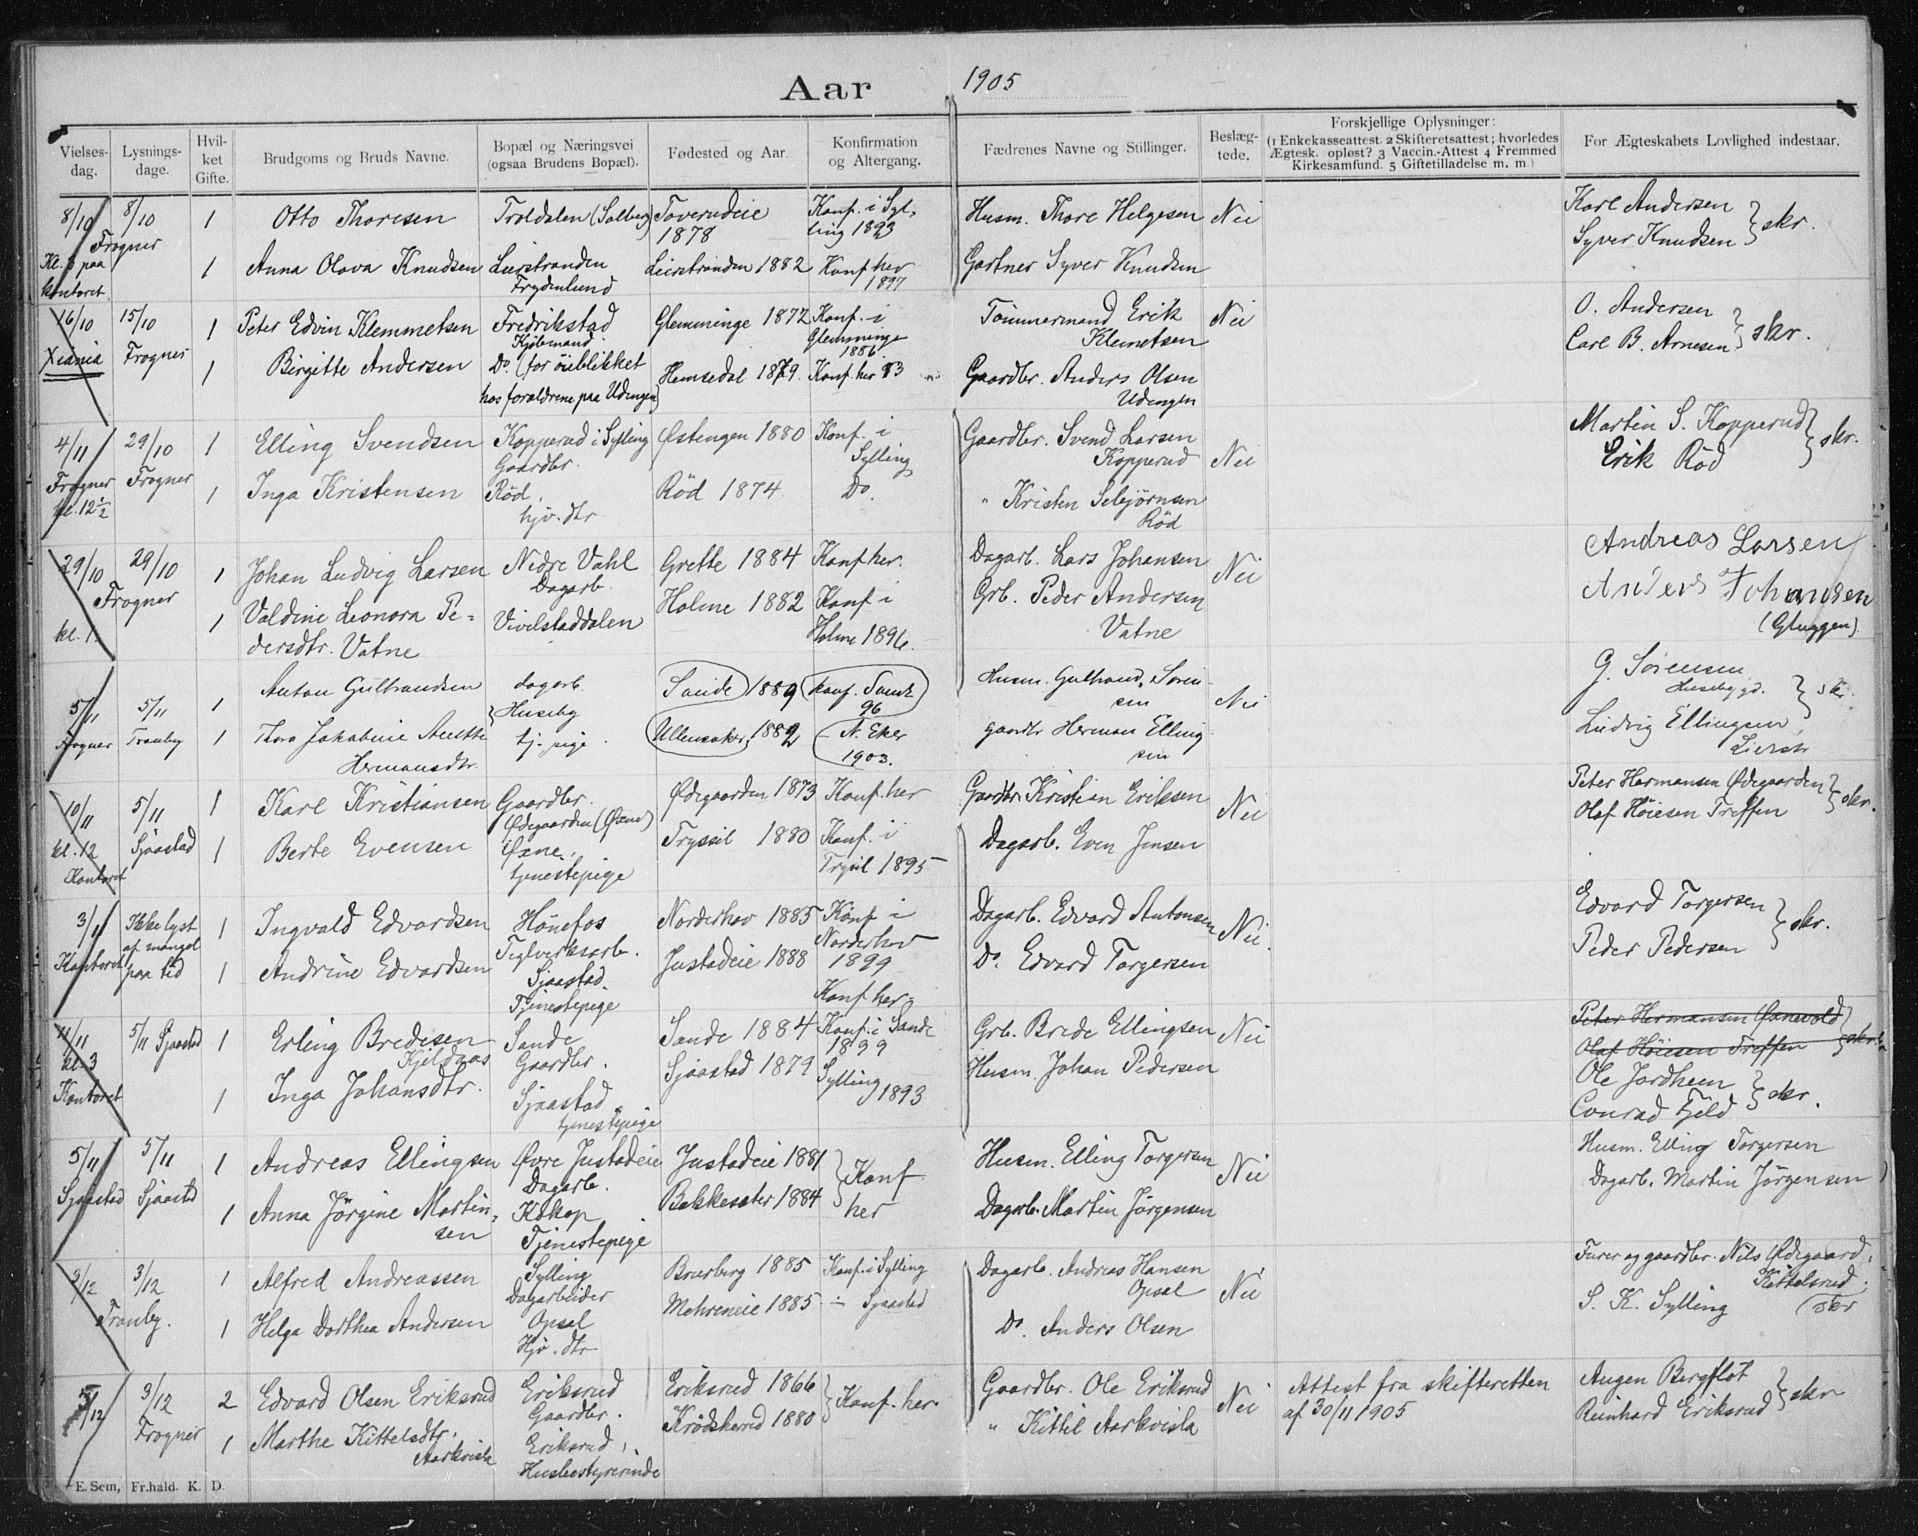 Aar 1905
Vielses-dag. Lysnings-dage. Hvil-ket Gifte. Brudgoms og Bruds Navne. Bopæl og Næringsvei (ogsaa Brudens Bopæl). Fødested og Aar. Konfirmation og Altergang. Fædrenes Navne og Stillinger. Beslæg-tede. Forskjellige Oplysninger: (1 Enkekasseattest. 2 Skifteretsattest; hvorledes Ægtesk. opløst? 3 Vaccin.-Attest 4 Fremmed Kirkesamfund. 5 Giftetilladelse m. m.) For Ægteskabets Lovlighed indestaar.
8/10 8/10 1 Otto Thoresen Troldalen (Solberg) Toverudeie 1878 Konf. i Syl-ling 1893 Husm. Thore Helgesen Nei Karl Andersen
Frogner Syver Knudsen } skr.
Kl. 3 paa kontoret 1 Anna Olava Knudsen Lierstranden Frydenlund Lierstranden 1882 Konf her 1897 Gartner Syver Knudsen
16/10 15/10 1 Peter Edvin Klemmetsen Fredrikstad Kjøbmand Glemminge 1872 Konf. i Glemminge 1886 Tømmermand Erik Klemetsen Nei O. Andersen
Xiania Frogner 1 Birgitte Andersen Do. (for øieblikket hos forældrene paa Udengen) Hemsedal 1879. Konf her 93 Gaardbr. Anders Olsen Udengen Carl B. Arnesen } skr.
4/11 29/10 1 Elling Svendsen Kopperud i Sylling Gaardbr. Østengen 1880 Konf. i Sylling Gaardbr. Svend Larsen Kopperud Nei Martin S. Kopperud
Frogner kl. 12½ Frogner 1 Inga Kristensen Rød. hjv. dtr Rød 1874 Do. " Kristen Sebjørnsen Rød Erik Rød } skr.
29/10 29/10 1 Johan Ludvig Larsen Nedre Vahl Dagarb. Grette 1884 Konf her. Dagarb. Lars Johansen Nei Andreas Larsen
Frogner kl. 1 1 Valdine Leonora Pe-dersdtr. Vatne Vivelstaddalen Holme 1882 Konf i Holme 1896. Grb. Peder Andersen Vatne Anders Johansen (Gluggen)
5/11 5/11 1 Anton Gulbrandsen dagarb. Huseby Sande 1889 Konf. Sande 96 Husm. Gulbrand Søren-sen Nei G. Sørensen Huseby gd.
Frogner Tranby 1 Thora Jakobine Anette Hermansdtr. tj. pige Ullensaker, 1882 N. Eker 1903. gaardbr Herman Elling-sen Ludvig Ellingsen, Lierstr } skr.
10/11 5/11 1 Karl Kristiansen Gaardbr. Ødegaarden (Øxne) Ødegaarden 1873 Konf. her Gaardbr. Kristian Eriksen Nei Peter Hermansen Ødegaarden
kl. 12 Kontoret Sjaastad 1 Berte Evensen Øxne, tjenestepige Tryssil 1880 Konf. i Trysil 1895 Dagarb. Even Jensen Olaf Høiesen Treffen } skr.
3/11 Ikke lyst af mangel paa tid 1 Ingvald Edvardsen Hønefos Teglverksarb. Norderhov 1885 Konf i Norderhov 1899 Dagarb. Edvard Antonsen Nei. Edvard Torgersen
Kontoret 1 Andrine Edvardsen Sjaastad. Tjenestepige Justadeie 1888 Konf her. Do. Edvard Torgersen Peder Pedersen } skr.
11/11 5/11 Sjaastad 1 Erling Bredesen Kjildaas Sande Gaardbr. Sande 1884 Konf. i Sande 1899 Grb. Brede Ellingsen Nei Peter Hermansen
Olaf Høiesen Treffen } skr.
kl. 3 Kontoret 1 Inga Johansdtr. Sjaastad tjenestepige Sjaastad 1879 Sylling 1893 Husm. Johan Pedersen Ole Jordhem
Conrad Fjeld } skr.
5/11 5/11 1 Andreas Ellingsen Øvre Justadeie Dagarb. Justadeie 1881 } Konf her Husm. Elling Torgersen Nei Husm. Elling Torgersen
Sjaastad Sjaastad 1 Anna Jørgine Martin-sen Kskop Tjenestepige Bekkesæter 1884 Dagarb. Martin Jørgensen Dagarb. Martin Jørgensen )
3/12 3/12 1 Alfred Andreassen Sylling Dagarbeider Bruerberg 1885 Konf. i Sylling Dagarb. Andreas Hansen Opsal Nei Furer og gaardbr. Nils Ødegaard, Kittelsrud.
Tranby. 1 Helga Dorthea Andersen Opsal Hjv. dtr Mehreneie 1885 — Sjaastad Do. Anders Olsen S. K. Sylling (skr
3/12 3/12 2 Edvard Olsen Eriksrud Eriksrud Gaardbr. Eriksrud 1866 } Konf. her. Gaardbr. Ole Eriksrud Nei Attest fra skifteretten af 30/11 1905 Augen Bergflot
Frogner 1 Marthe Kittelsdtr. Aarkvisla Eriksrud, Husbestyrerinde Krødsherred 1880 " Kittil Aarkvisla Reinhard Eriksrud } skr
E. Sem, Fr.hald. K. D.